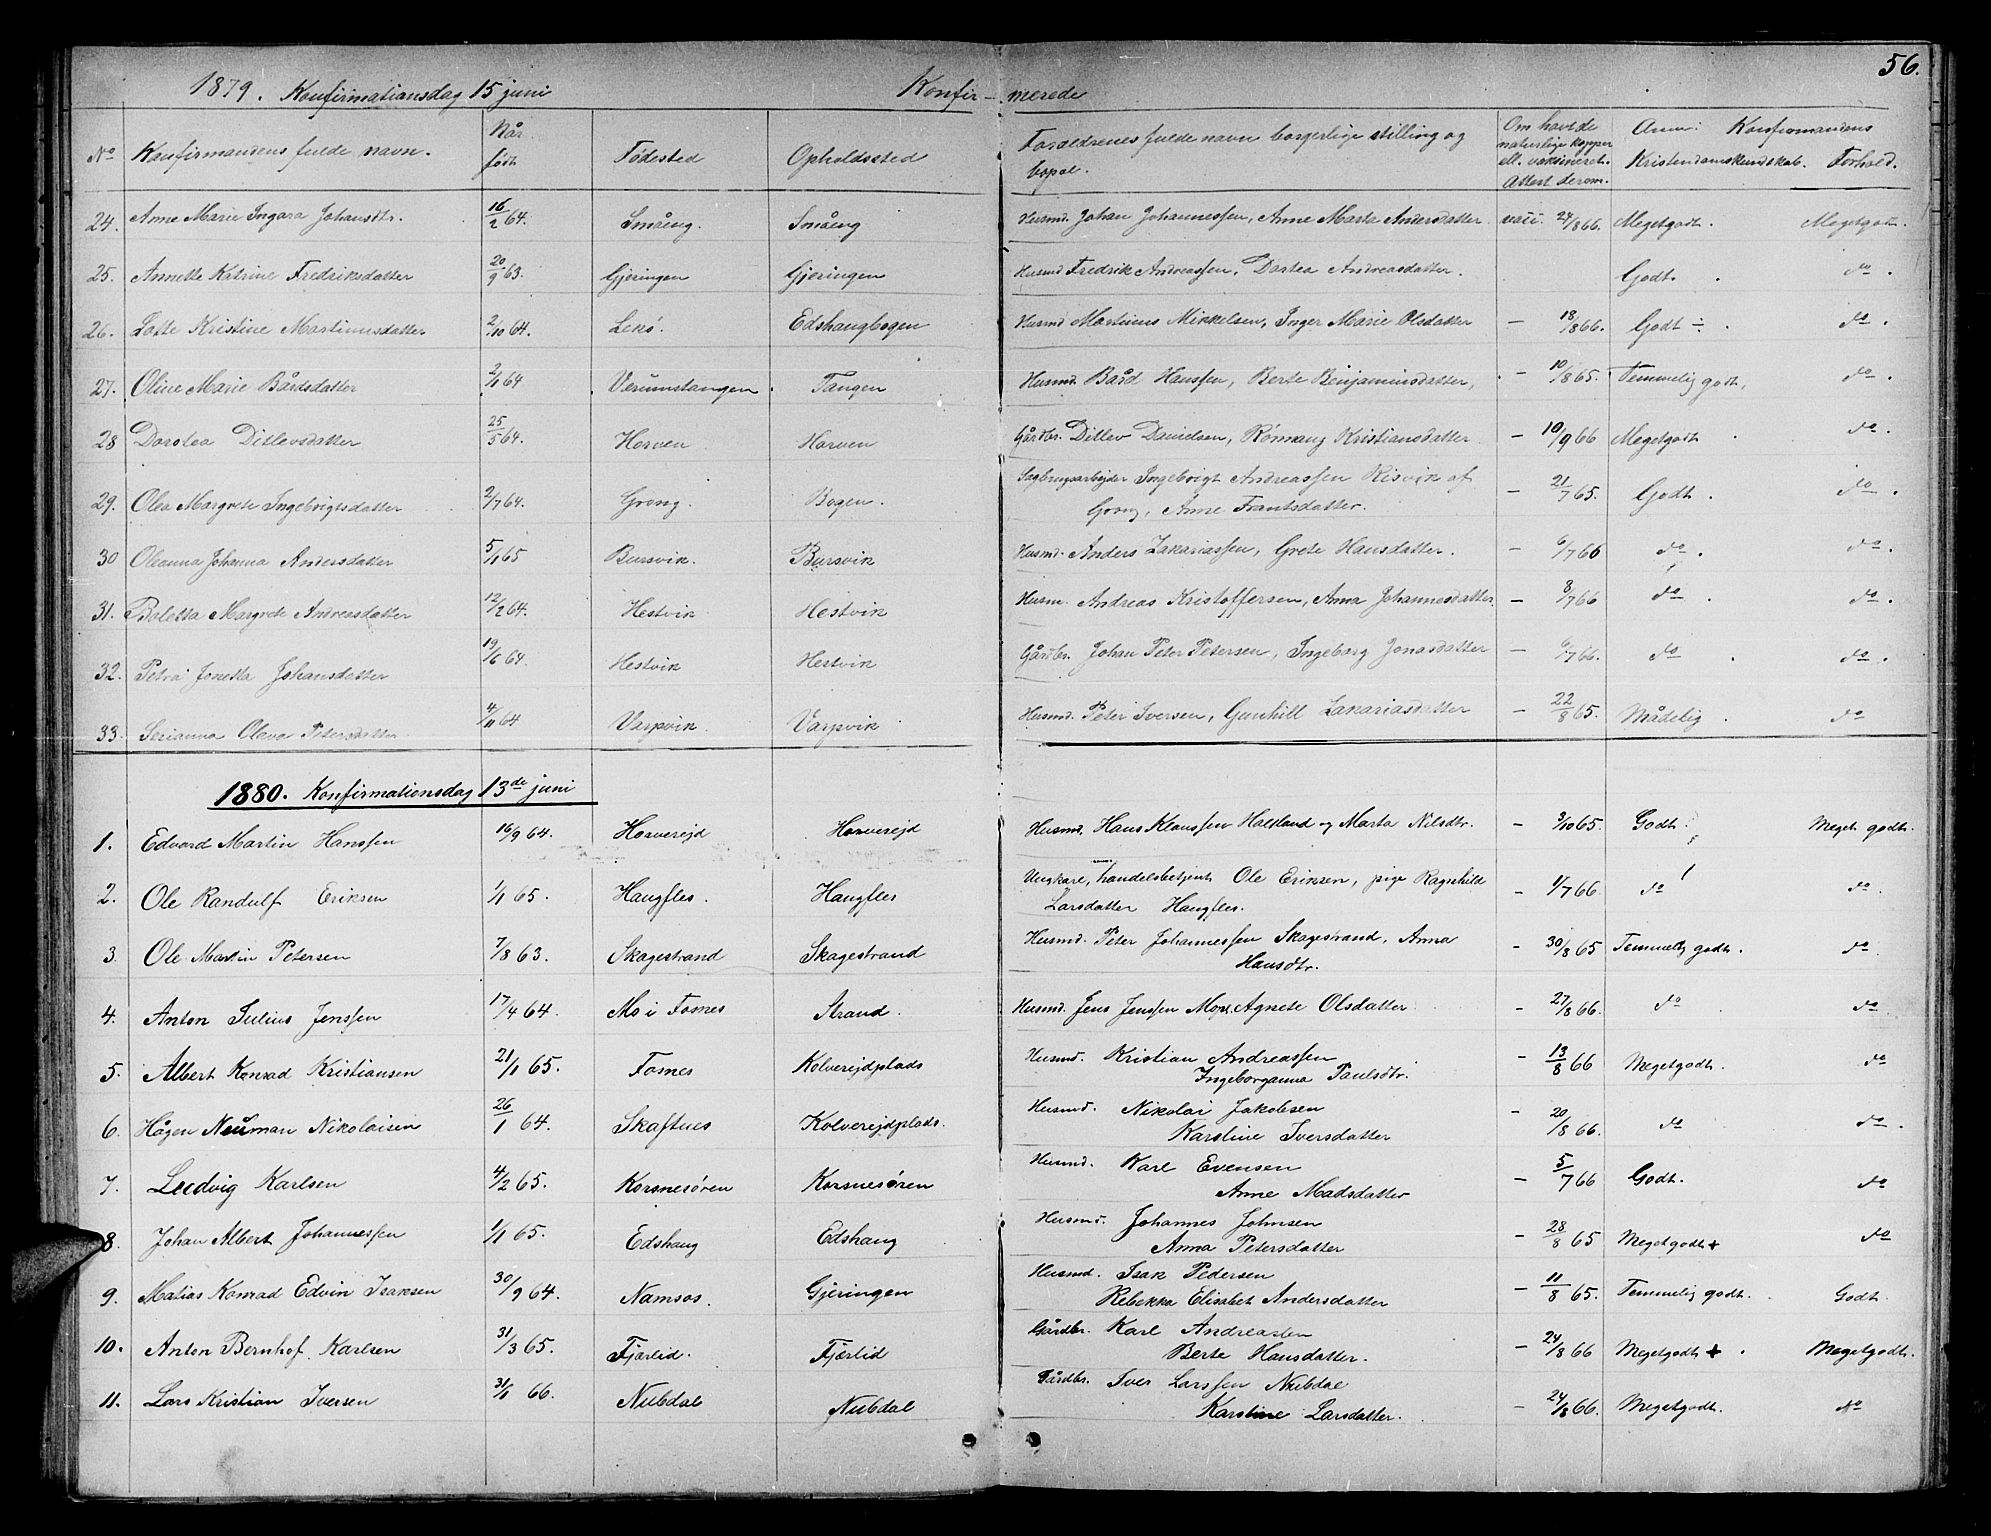 56.
1879. Konfirmationsdag 15 juni Konfir- merede
No Konfirmandens fulde navn. Når født Fødested Opholdssted Forældrenes fulde navn borgerlige stilling og bopæl. Om havt de naturlige kopper ell. vaksineret. Attest derom. Anm: Konfirmandens Kristendomskundskab. Forhold.
24. Anne Marie Ingara Johansdtr. 16/2 64. Småeng. Småeng Husmd. Johan Johannessen, Anne Marta Andersdatter vacc. 24/8 66. Megetgodt. Megetgodt.
25. Annette Katrine Fredriksdatter 20/9 63. Gjeringen Gjeringen Husmd Fredrik Andreassen, Dortea Andreasdatter. Godt. do.
26. Lotte Kristine Martinusdatter 2/10 64. Lekø. Edshaugbogen Husmd Martinus Mikkelsen, Inger Marie Olsdatter — 18/8 66. Godt ÷. do.
27. Oline Marie Bårdsdatter 2/11 64 Verumstangen. Tangen Husmd. Bård Hanssen, Berte Benjaminsdatter, — 10/8 65. Temmelig godt, do.
28 Dorotea Ditlevsdatter 25/5 64. Horven Horven Gårdbr. Ditlev Danielsen, Rønnaug Kristiansdatter — 10/9 66 Megetgodt. do.
29. Olea Margrete Ingebrigtsdatter 2/7 64. Grong. Bogen. Sagbrugsarbejder Ingebrigt Andreassen Risvik af
Grong, Anne Frantsdatter. — 21/7 65. Godt. do.
30 Oleanna Johanna Andersdatter 5/1 65 Bursvik. Bursvik Husmd. Anders Zakariassen, Grete Hansdatter. — 6/7 66 do. do.
31. Boletta Margrete Andreasdatter 12/2 64. Hestvik Hestvik Husm. Andreas Kristoffersen, Anna Johannesdatter. — 8/7 66 do. do.
32. Petra Jonetta Johansdatter 19/6 64. Hestvik Hestvik Gårdbr. Johan Peter Petersen, Ingeborg Jonasdatter — 6/7 66. do. do.
33. Serianna Olava Petersdatter 4/11 64 Varpvik. Varpvik Husmd. Peter Iversen, Gunhill Zakariasdatter — 22/8 65. Mådelig. do
1880. Konfirmationsdag 13de juni
1. Edvard Martin Hanssen 16/9 64. Horverejd Horverejd Husmd. Hans Klaussen Halsland og Marta Nilsdtr. — 3/10 65. Godt. Meget godt.
2. Ole Randulf Eriksen 1/1 65. Haugfles. Haugfles Ungkarl, handelsbetjent Ole Eriksen, pige Ragnhild
Larsdatter Haugfles. — 1/7 66. do do.
3. Ole Martin Petersen 7/8 63. Skagestrand Skagestrand Husmd. Peter Johannessen Skagestrand, Anna
Hansdtr. — 30/8 65 Temmelig godt. do
4. Anton Julius Jenssen 17/4 64. Mo i Fosnes Strand. Husmd. Jens Jenssen Mopl. Agnete Olsdatter — 27/8 66. do. do.
5. Albert Konrad Kristiansen 21/1 65. Fosnes Kolverejdplads Husmd. Kristian Andreassen
Ingeborganna Paulsdtr. — 13/8 66 Megetgodt. do
6. Hågen Neuman Nikolaisen 26/1 64. Skaftnes Kolverejdplads. Husmd. Nikolai Jakobsen
Karoline Iversdatter — 20/8 66. do do.
7. Ludvig Karlsen 4/2 65. Korsnesøren Korsnesøren Husmd. Karl Evensen
Anne Madsdatter — 5/7 66 Godt. do
8. Johan Albert Johannessen 1/1 65. Edshaug Edshaug Husmd. Johannes Johnsen
Anna Petersdatter — 28/8 65 Megetgodt+ do
9. Matias Konrad Edvin Isaksen 30/9 64. Namsos. Gjeringen Husmd. Isak Pedersen
Rebekka Elisabet Andersdatter — 11/8 65. Temmelig godt. Godt.
10. Anton Bernhof Karlsen 31/3 65. Fjærlid. Fjærlid Gårdbr. Karl Andreassen
Berte Hansdatter. — 24/8 66 Megetgodt +. Megetgodt.
11. Lars Kristian Iversen 31/1 66. Nubdal Nubdal Gårdbr. Iver Larssen Nubdal
Karoline Larsdatter. — 24/8 66. Megetgodt. do